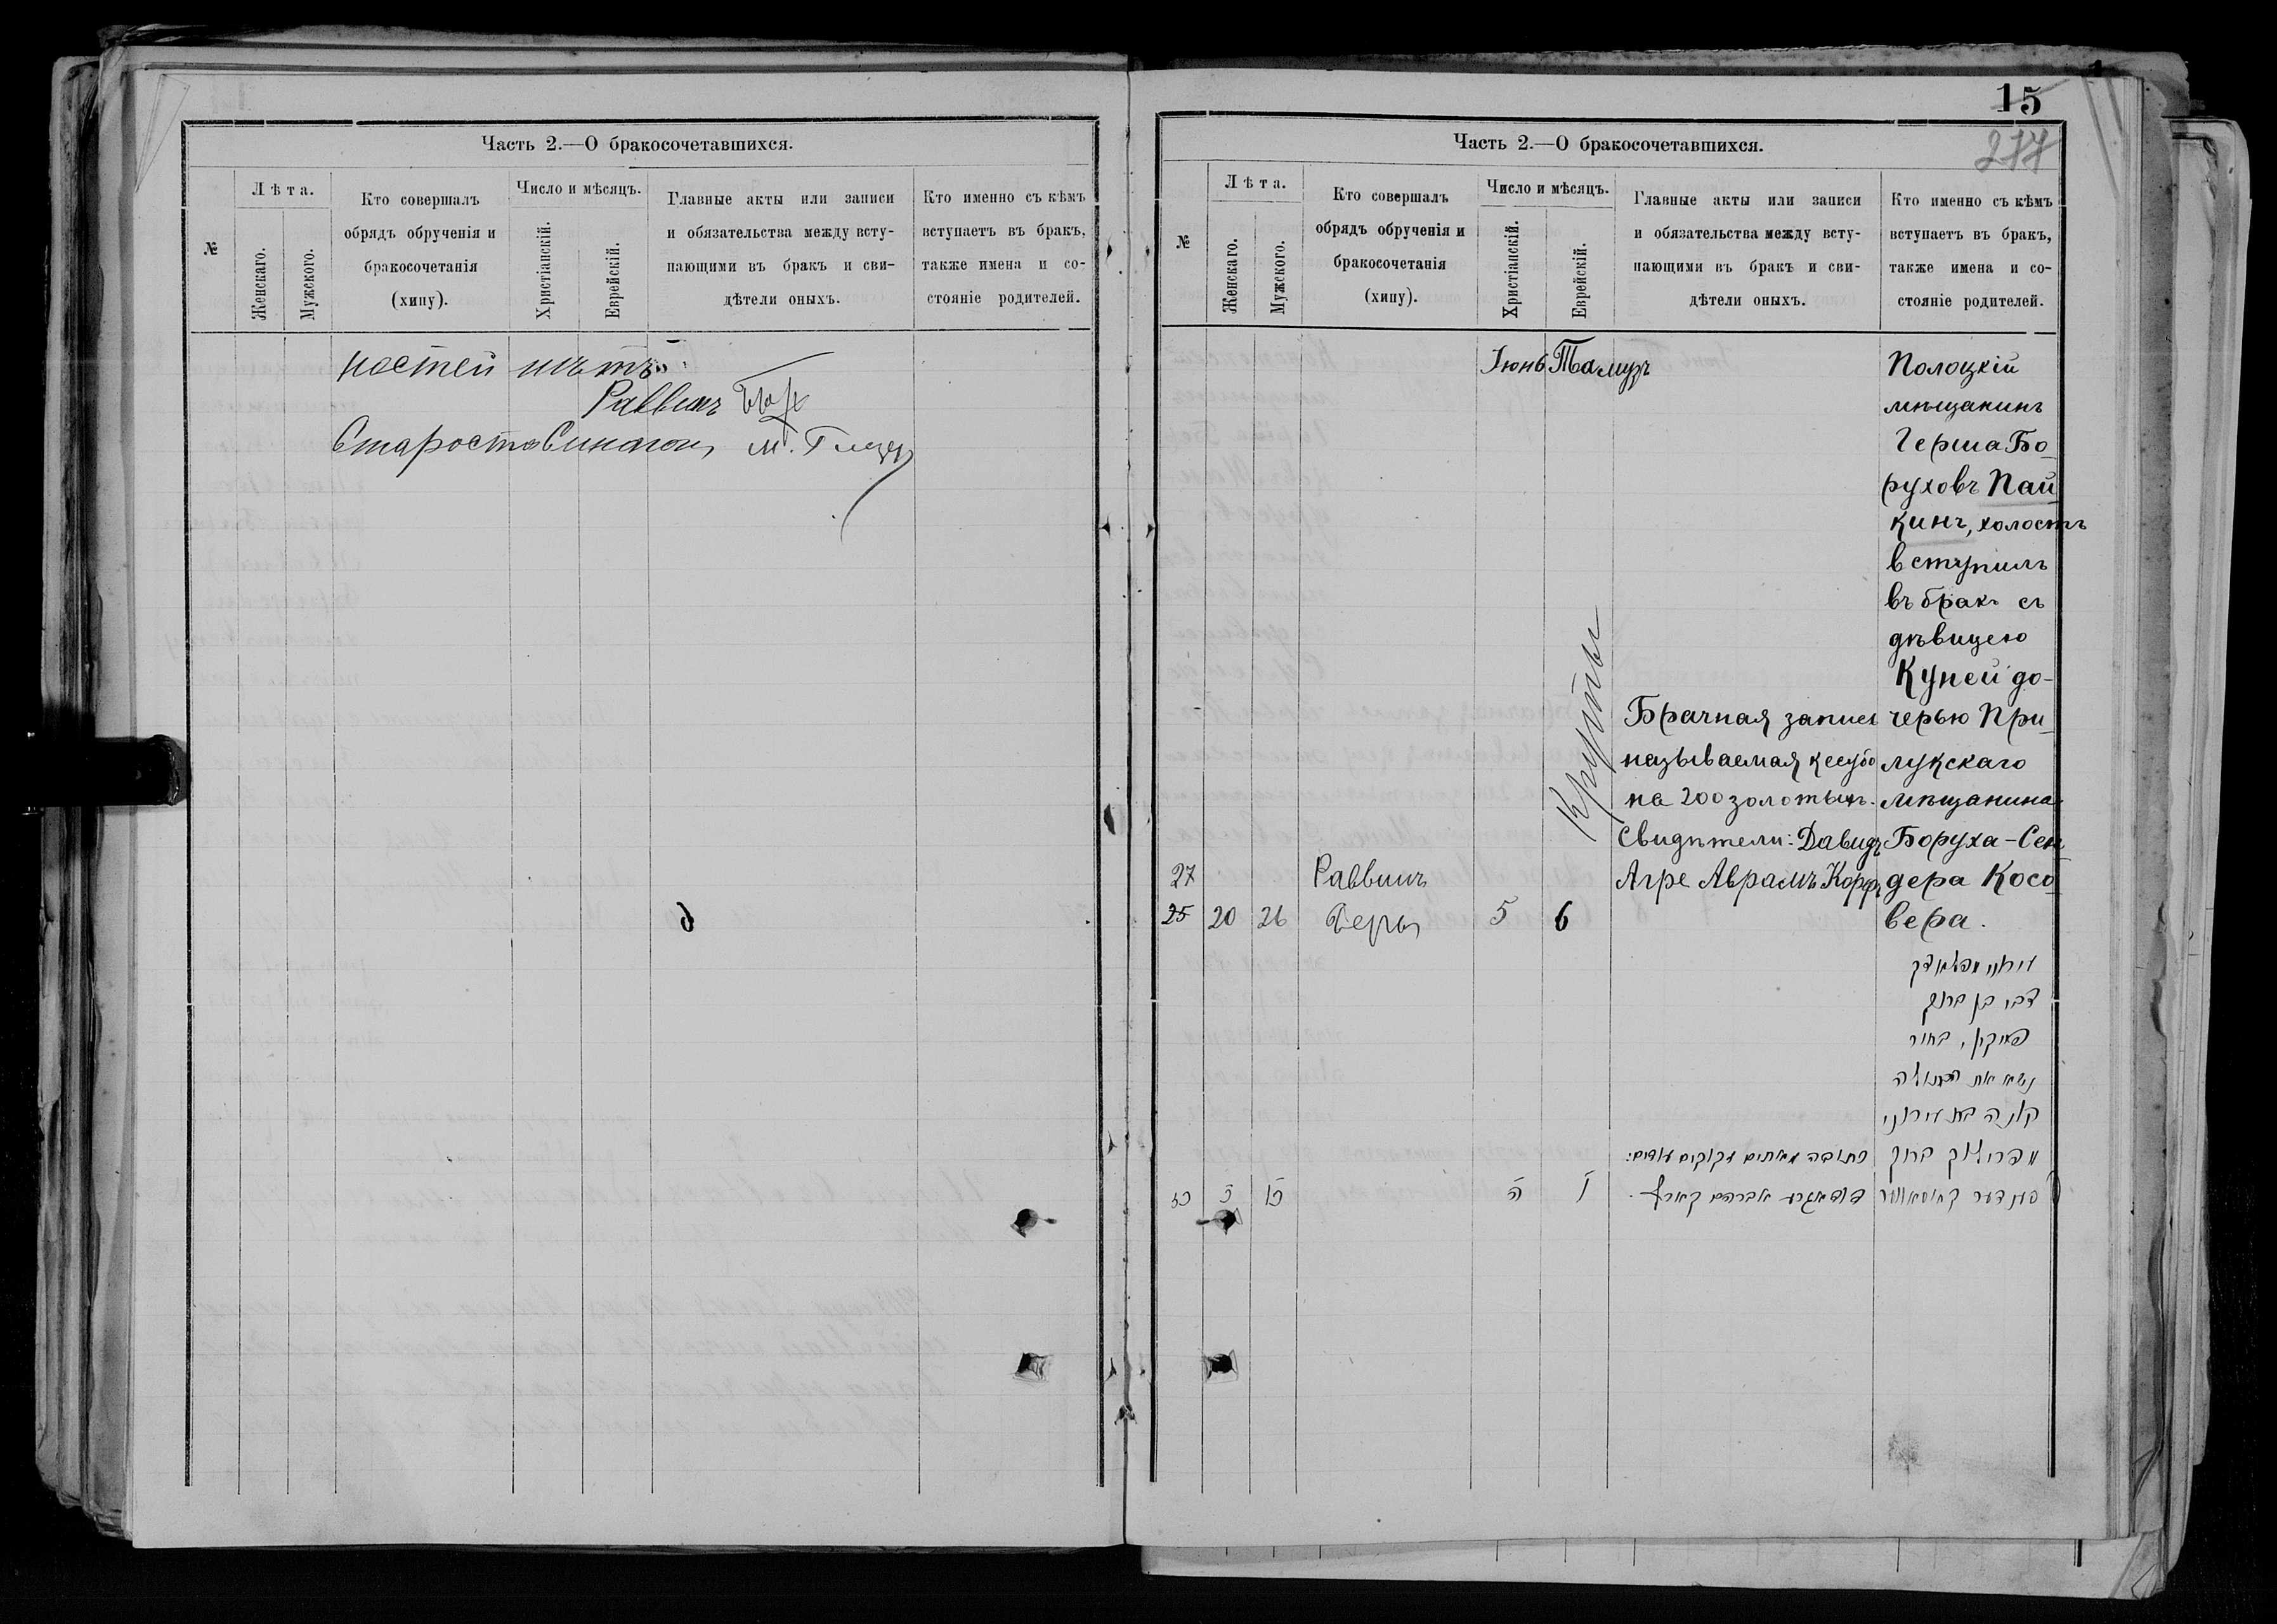 Часть 2.—О бракосочетавшихся.
№
Лѣта.
Женскаго.
Мужского.
Кто совершалъ
обрядъ обрученія и
бракосочетанія
(хипу).
Число и мѣсяцъ.
Христіанскій.
Еврейскій.
Главные акты или записи
и обязательства между всту-
пающими въ бракъ и сви-
дѣтели оныхъ.
Кто именно съ кѣмъ
вступаетъ въ бракъ,
также имена и со-
стояніе родителей.
ностей нѣтъ
Раввинъ
Староста Синагоги М.
15
277
Часть 2.—О бракосочетавшихся.
№
Лѣта.
Женскаго.
Мужского.
Кто совершалъ
обрядъ обрученія и
бракосочетанія
(хипу).
Число и мѣсяцъ.
Христіанскій.
Еврейскій.
Главные акты или записи
и обязательства между всту-
пающими въ бракъ и сви-
дѣтели оныхъ.
Кто именно съ кѣмъ
вступаетъ въ бракъ,
также имена и со-
стояніе родителей.
27
25
20
26
Раввинъ
Іюнь
5
Тамузъ
6
Брачная запись
называемая кесубо
на 200 золотыхъ.
Свидѣтели: Давидъ
Агре Аврамъ Корфъ
Полоцкій
мѣщанинъ
Герша Бо-
руховъ Пай-
кинъ, холостъ
вступилъ
въ бракъ съ
дѣвицею
Куней до-
черью При-
лукскаго
мѣщанина
Боруха-Сен-
дера Косо-
вера.
צבי בן ברוך
פייקין, בחור
נשא את הבתולה
קוניה בת עירוני
מפרילוק ברוך
סענדער קאסאווער
כתובה מאתים זקוקים עדים:
אברהם קארף
ה
ו